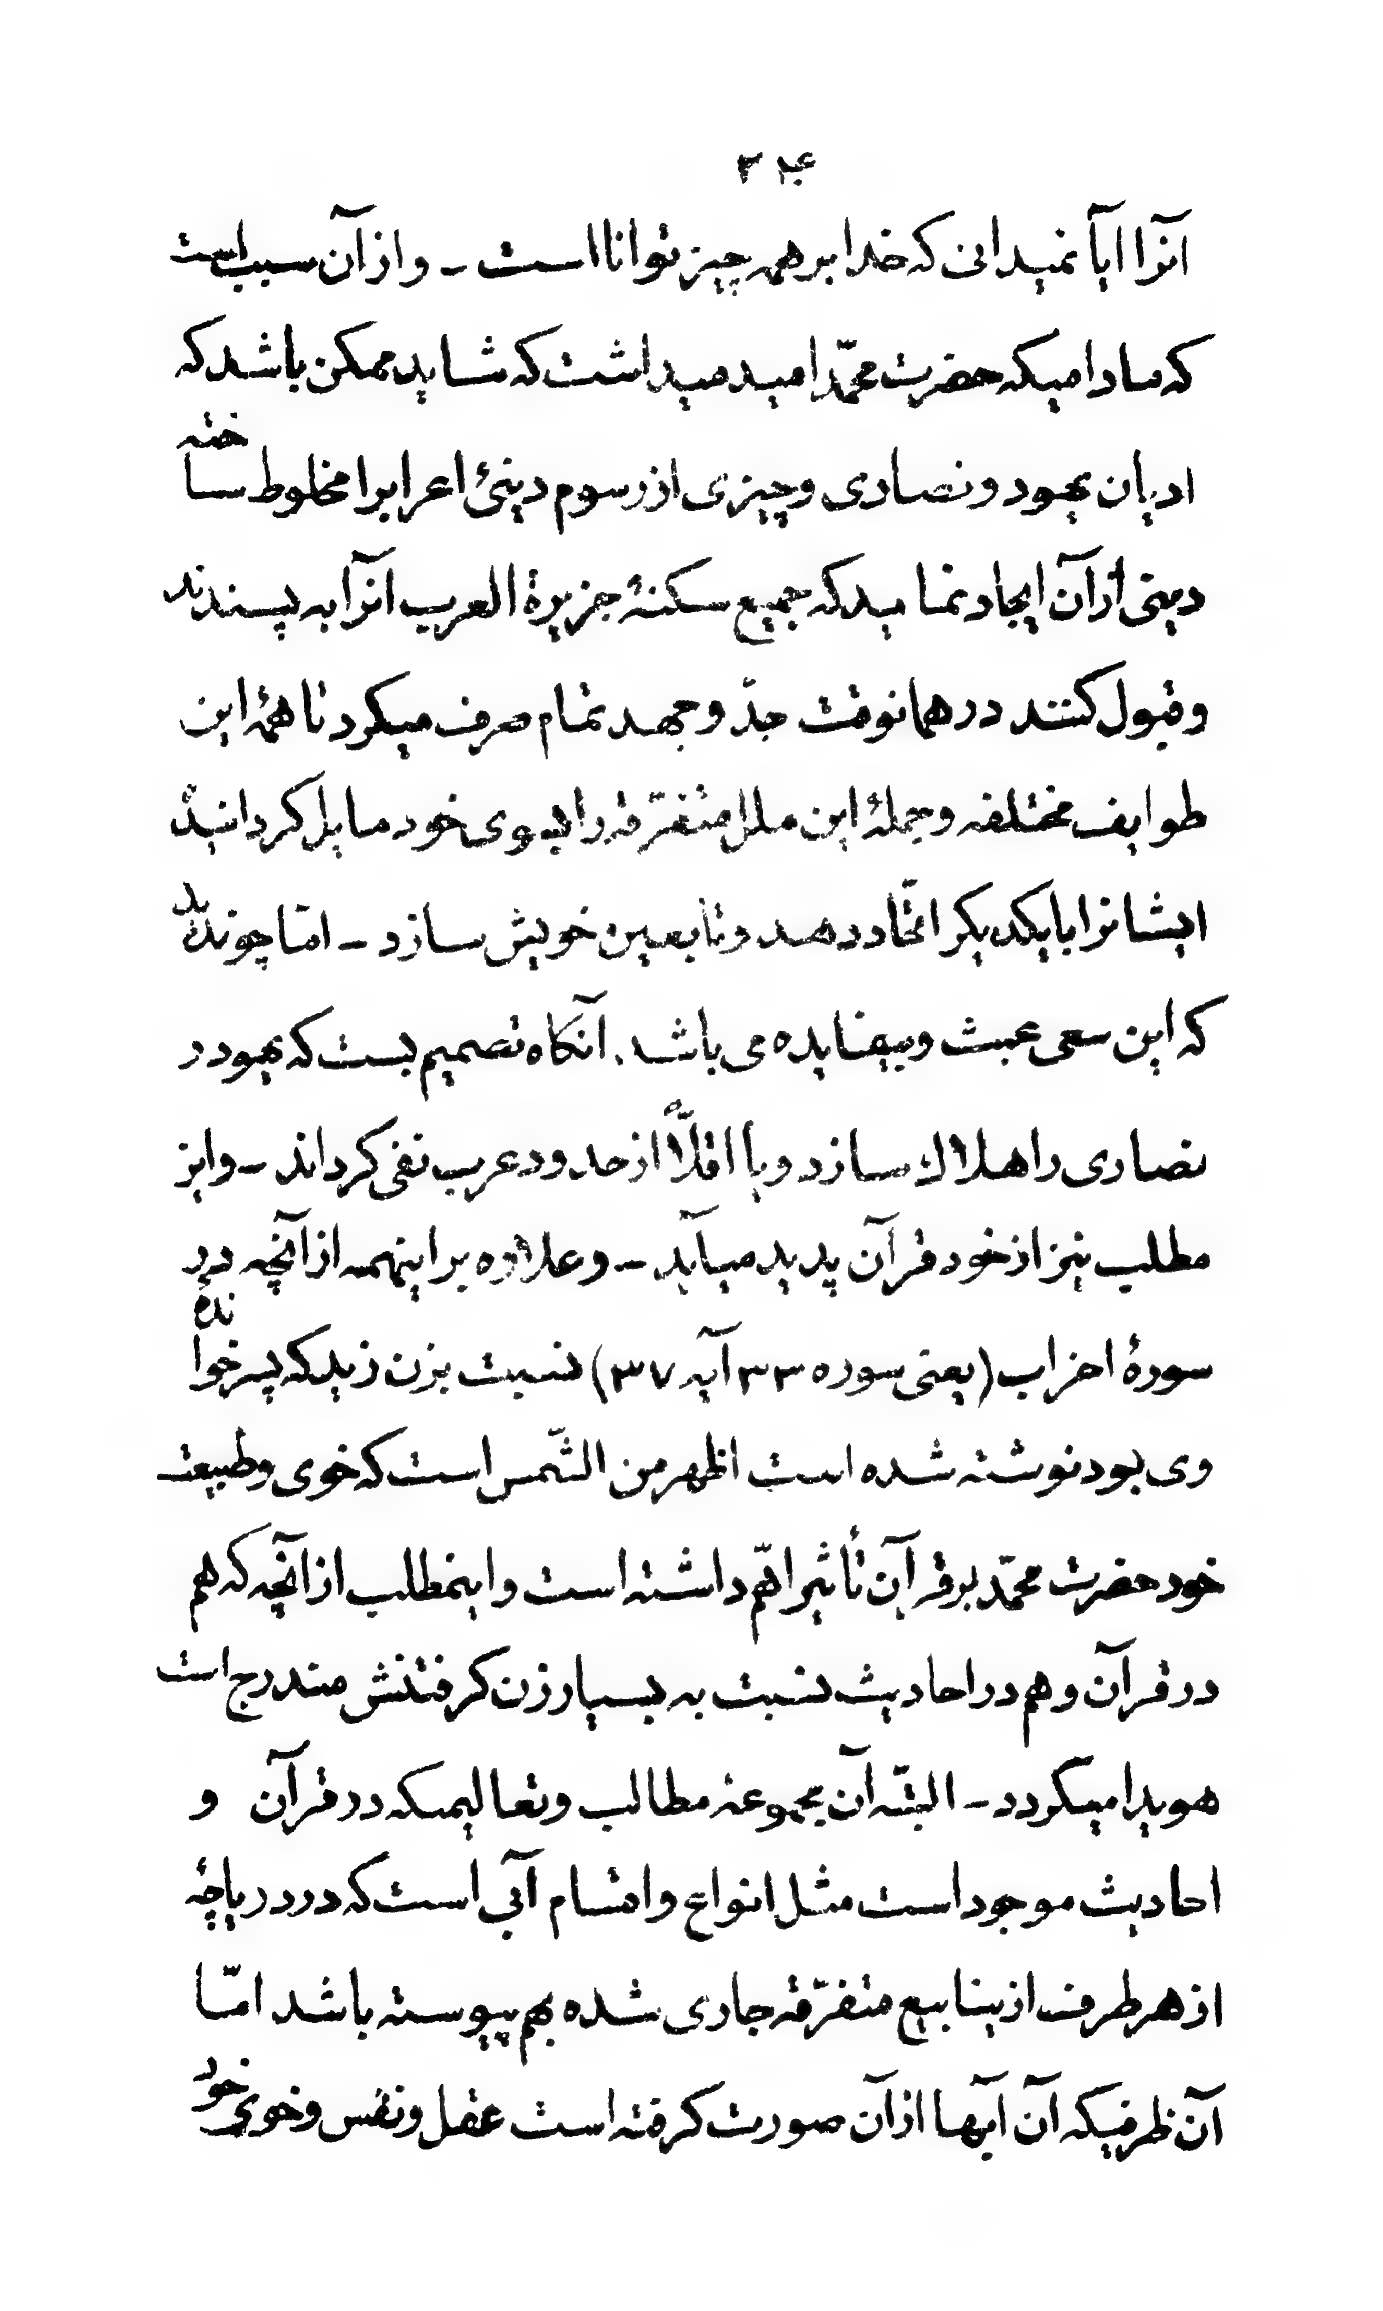 ۲۴۰
آنرا ایا نمیدانی که خدا بر همه چیز توانا است - و از آن سبب است
که مادامیکه حضرت محمّد امید میداشت که شاید ممکن باشد که
ادیان یهود و نصاری و چیزی از رسوم دینیٔ اعرابرا مخلوط ساخته
دینی از آن ایجاد نماید که جمیع سکنهٔ جزیرة العرب آنرا به پسندند
و قبول کنند در همانوقت جدّ و جهد تمام صرف میکرد تا همهٔ این
طوایف مختلفه و جملهٔ این ملل متفرّقه را بسوی خود مایل کردانیده
ایشانرا با یکدیکر اتّحاد دهد و تابعین خویش سازد - امّا چون دید
که این سعی عبث و بیفایده می باشد. آنکاه تصمیم بست که یهود و
نصاری را هلاك سازد و یا اقلاًّ از حدود عرب نفی کرداند - و این
مطلب نیز از خود قرآن پدید میآید - و علاوه بر اینهمه از آنچه در
سورهٔ احزاب (یعنی سوره ۳۳ آیه ۳۷) نسبت بزن زید که پسر خواندهٔ
وی بود نوشته شده است اظهر من الشّمس است که خوی و طبیعت
خود حضرت محمّد بر قرآن تأثیر اهّم داشته است و اینمطلب از آنچه که هم
در قرآن و هم در احادیث نسبت به بسیار زن کرفتنش مندرج است
هویدا میکردد - البتّه آن مجموعهٔ مطالب و تعالیمیکه در قرآن و
احادیث موجود است مثل انواع و اقسام آبی است که در دریاچهٔ
از هر طرف از ینابیع متفرّقه جاری شده بهم پیوسته باشد امّا
آن ظرفیکه آن آبها از آن صورت کرفته است عقل و نفس و خوی خود